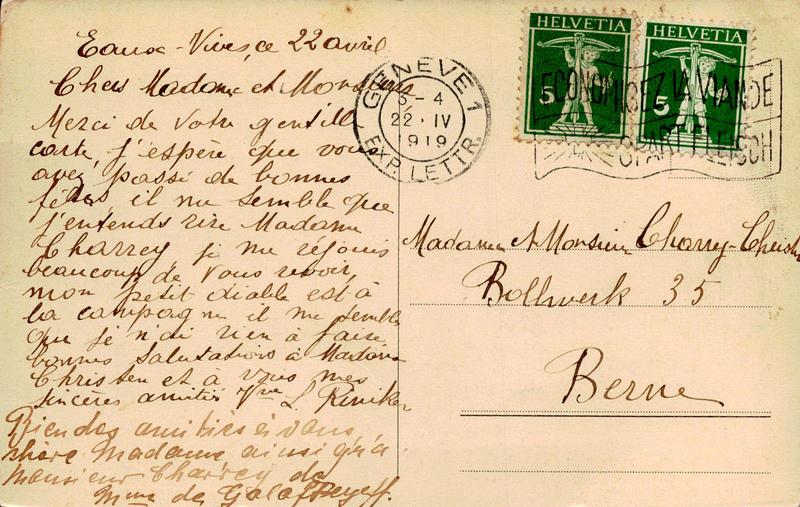 Eaux-Vives, ce 22 avril
Chers Madame et Monsieur
Merci de votre gentille
carte, j'espère que vous
avez passé de bonnes
fêtes, il me semble que
j'entends rire Madame
Charrey, je me réjouis
beaucoup de vous revoir,
mon petit diable est à
la campagne il me semble
que je n'ai rien à faire,
bonnes salutations à Madame
Christen et à vous mes
sincères amitiés Vve L. Riniker
Bien des amitiés à vous
chère Madame ainsi qu'à
Monsieur Charrey de
Mme de
GENÈVE 1
22·IV
1919
EXP. LETTR.
HELVETIA
5
HELVETIA
5
ECONOMISEZ LA VIANDE
SPART FLEISCH
Madame et Monsieur Charrey-Christen
Bollwerk 35
Berne